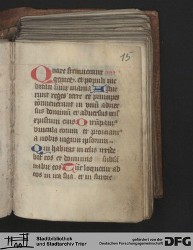 15
Quare fremuerunt
gentes et populi me
ditati sunt inania Asti
terunt reges terre et principes
convenerunt in unum adver
sus dominum et adversus cris
Dirumpamus
vincula eorum et proiciamus
a nobis iugum ipsorum
Qui habitat in celis irride
bit eos et dominus subsan
nabit eos Tunc loquetur ad
eos in ira sua et in furore
Stadtbibliothek
und Stadtarchiv Trier
gefördert von der
Deutschen Forschungsgemeinschaft
DFG